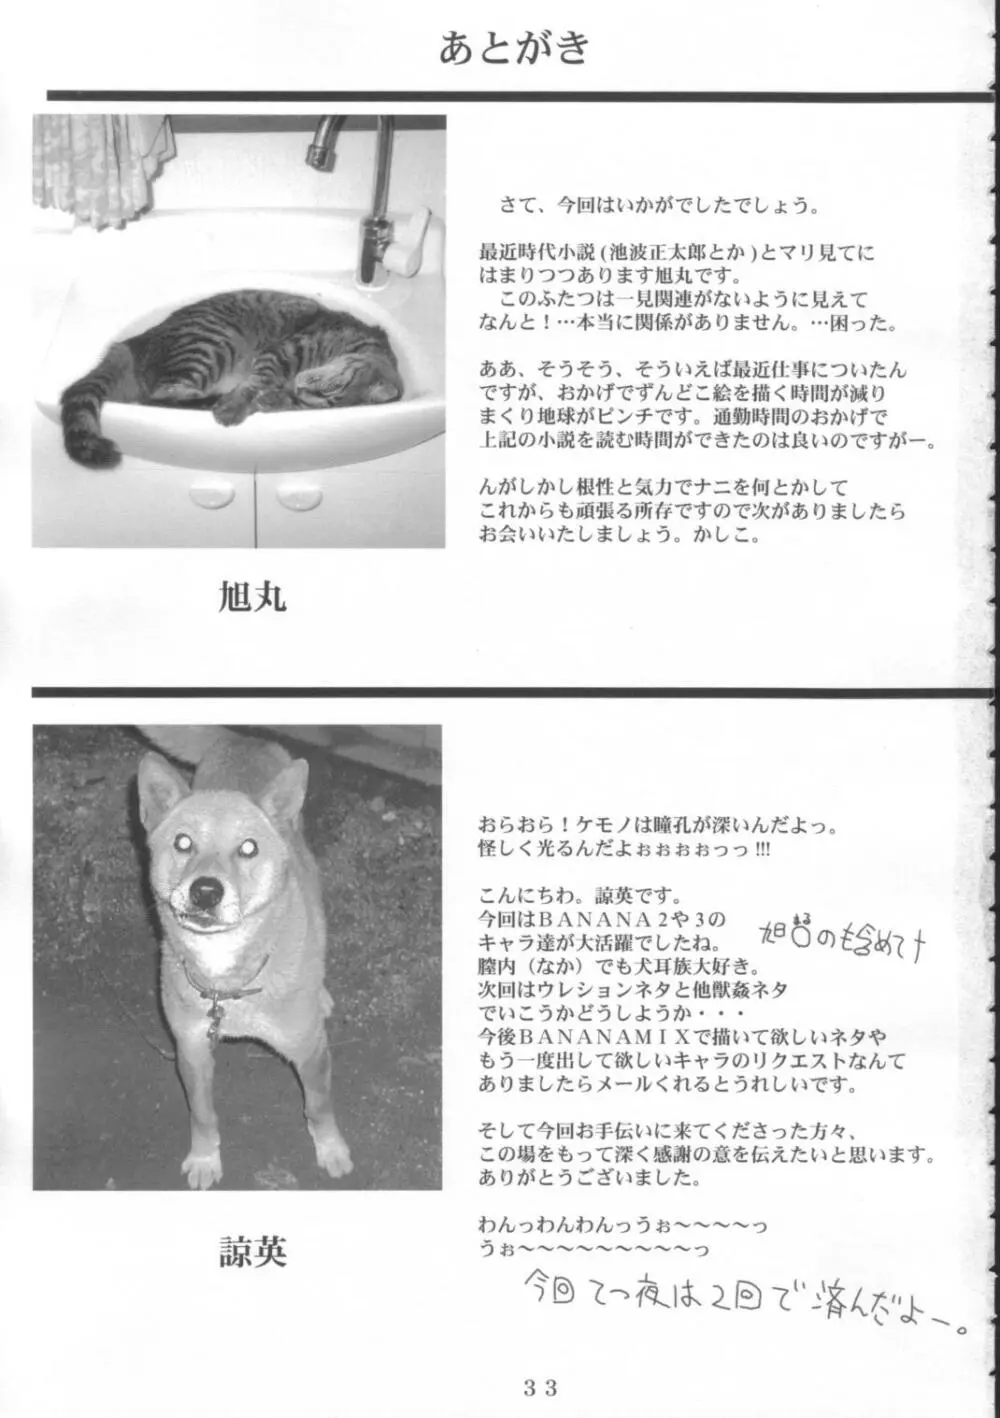 あとがき
さて、今回はいかがでしたでしょう。
最近時代小説(池波正太郎とか)とマリ見てに
はまりつつあります旭丸です。
このふたつは一見関連がないように見えて
なんと!…本当に関係がありません。…困った。
ああ、そうそう、そういえば最近仕事についたん
ですが、おかげでずんどこ絵を描く時間が減り
まくり地球がピンチです。通勤時間のおかげで
上記の小説を読む時間ができたのは良いのですがー。
んがしかし根性と気力でナニを何とかして
これからも頑張る所存ですので次がありましたら
お会いいたしましょう。かしこ。
旭丸
おらおら!ケモノは瞳孔が深いんだよっ。
怪しく光るんだよぉぉぉぉっっ!!!
こんにちわ。諒英です。
今回はBANANA2や3の
キャラ達が大活躍でしたね。
膣内(なか)でも犬耳族大好き。
次回はウレションネタと他獣姦ネタ
でいこうかどうしようか・・・
今後BANANAMIXで描いて欲しいネタや
もう一度出して欲しいキャラのリクエストなんて
ありましたらメールくれるとうれしいです。
そして今回お手伝いに来てくださった方々、
この場をもって深く感謝の意を伝えたいと思います。
ありがとうございました。
わんっわんわんっうぉ〜〜〜〜っ
うぉ〜〜〜〜〜〜〜〜〜っ
諒英
今回てつ夜は2回で済んだよー。
33